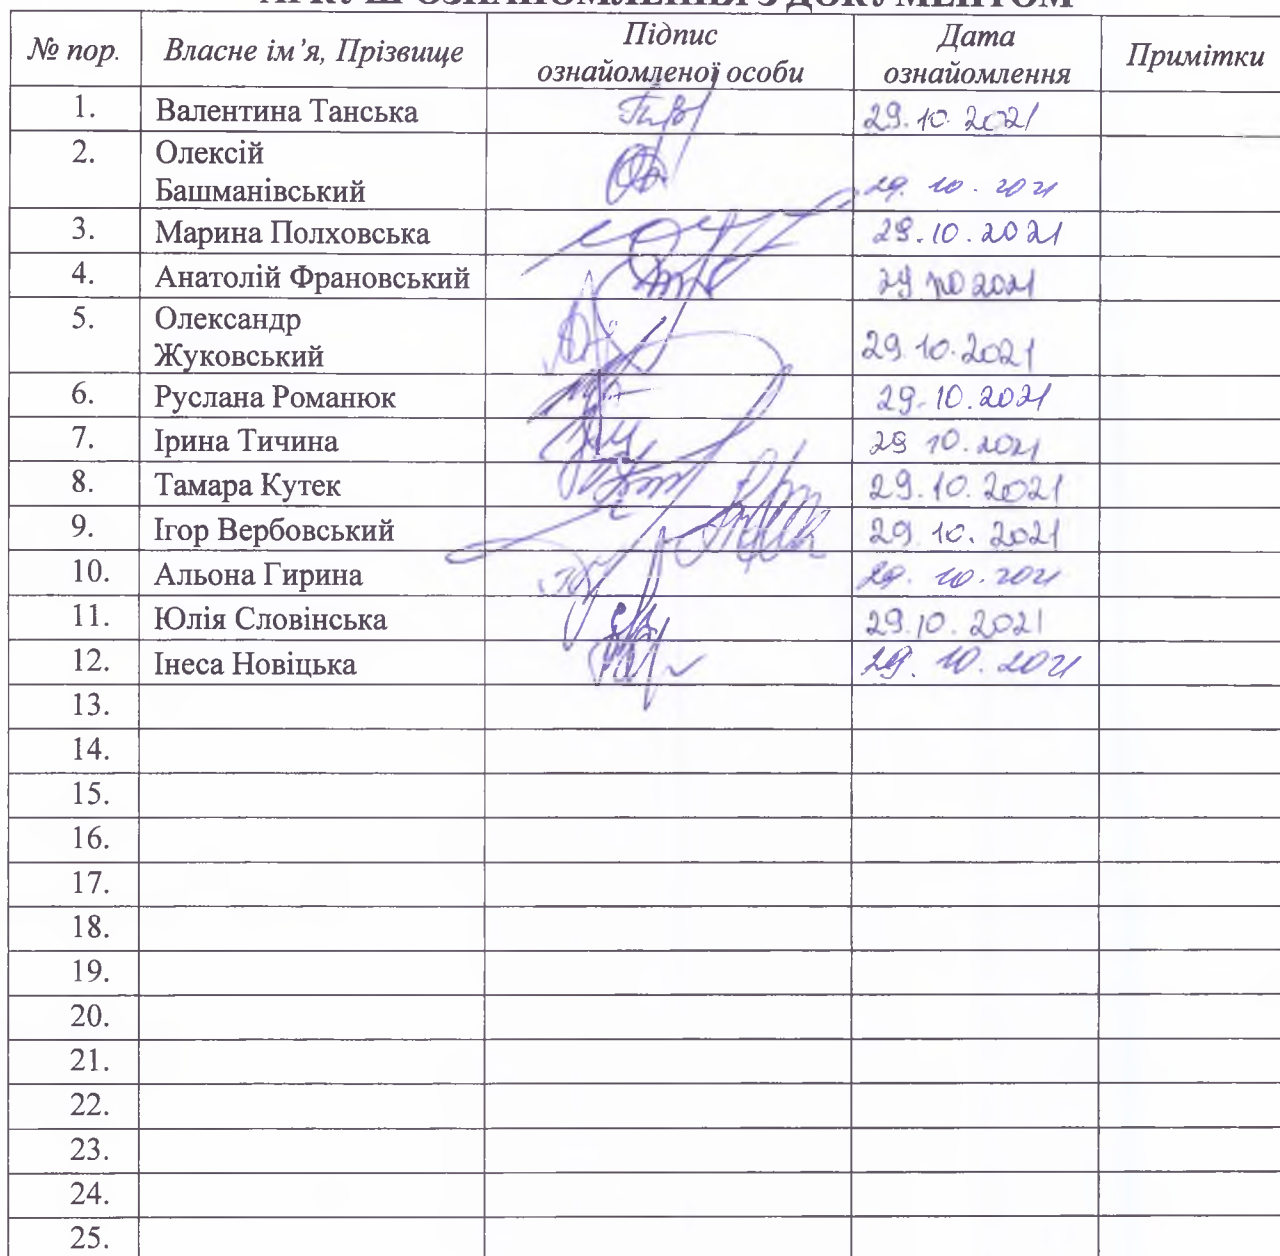 АРКУШ ОЗНАЙОМЛЕННЯ З ДОКУМЕНТОМ
№ пор. Власне ім’я, Прізвище Підпис ознайомленої особи Дата ознайомлення Примітки
1. Валентина Танська 29.10.2021
2. Олексій Башманівський 29.10.2021
3. Марина Полховська 29.10.2021
4. Анатолій Франовський 29 10 2021
5. Олександр Жуковський 29.10.2021
6. Руслана Романюк 29.10.2021
7. Ірина Тичина 29 10.2021
8. Тамара Кутек 29.10.2021
9. Ігор Вербовський 29.10.2021
10. Альона Гирина 29.10.2021
11. Юлія Словінська 29.10.2021
12. Інеса Новіцька 29.10.2021
13.
14.
15.
16.
17.
18.
19.
20.
21.
22.
23.
24.
25.